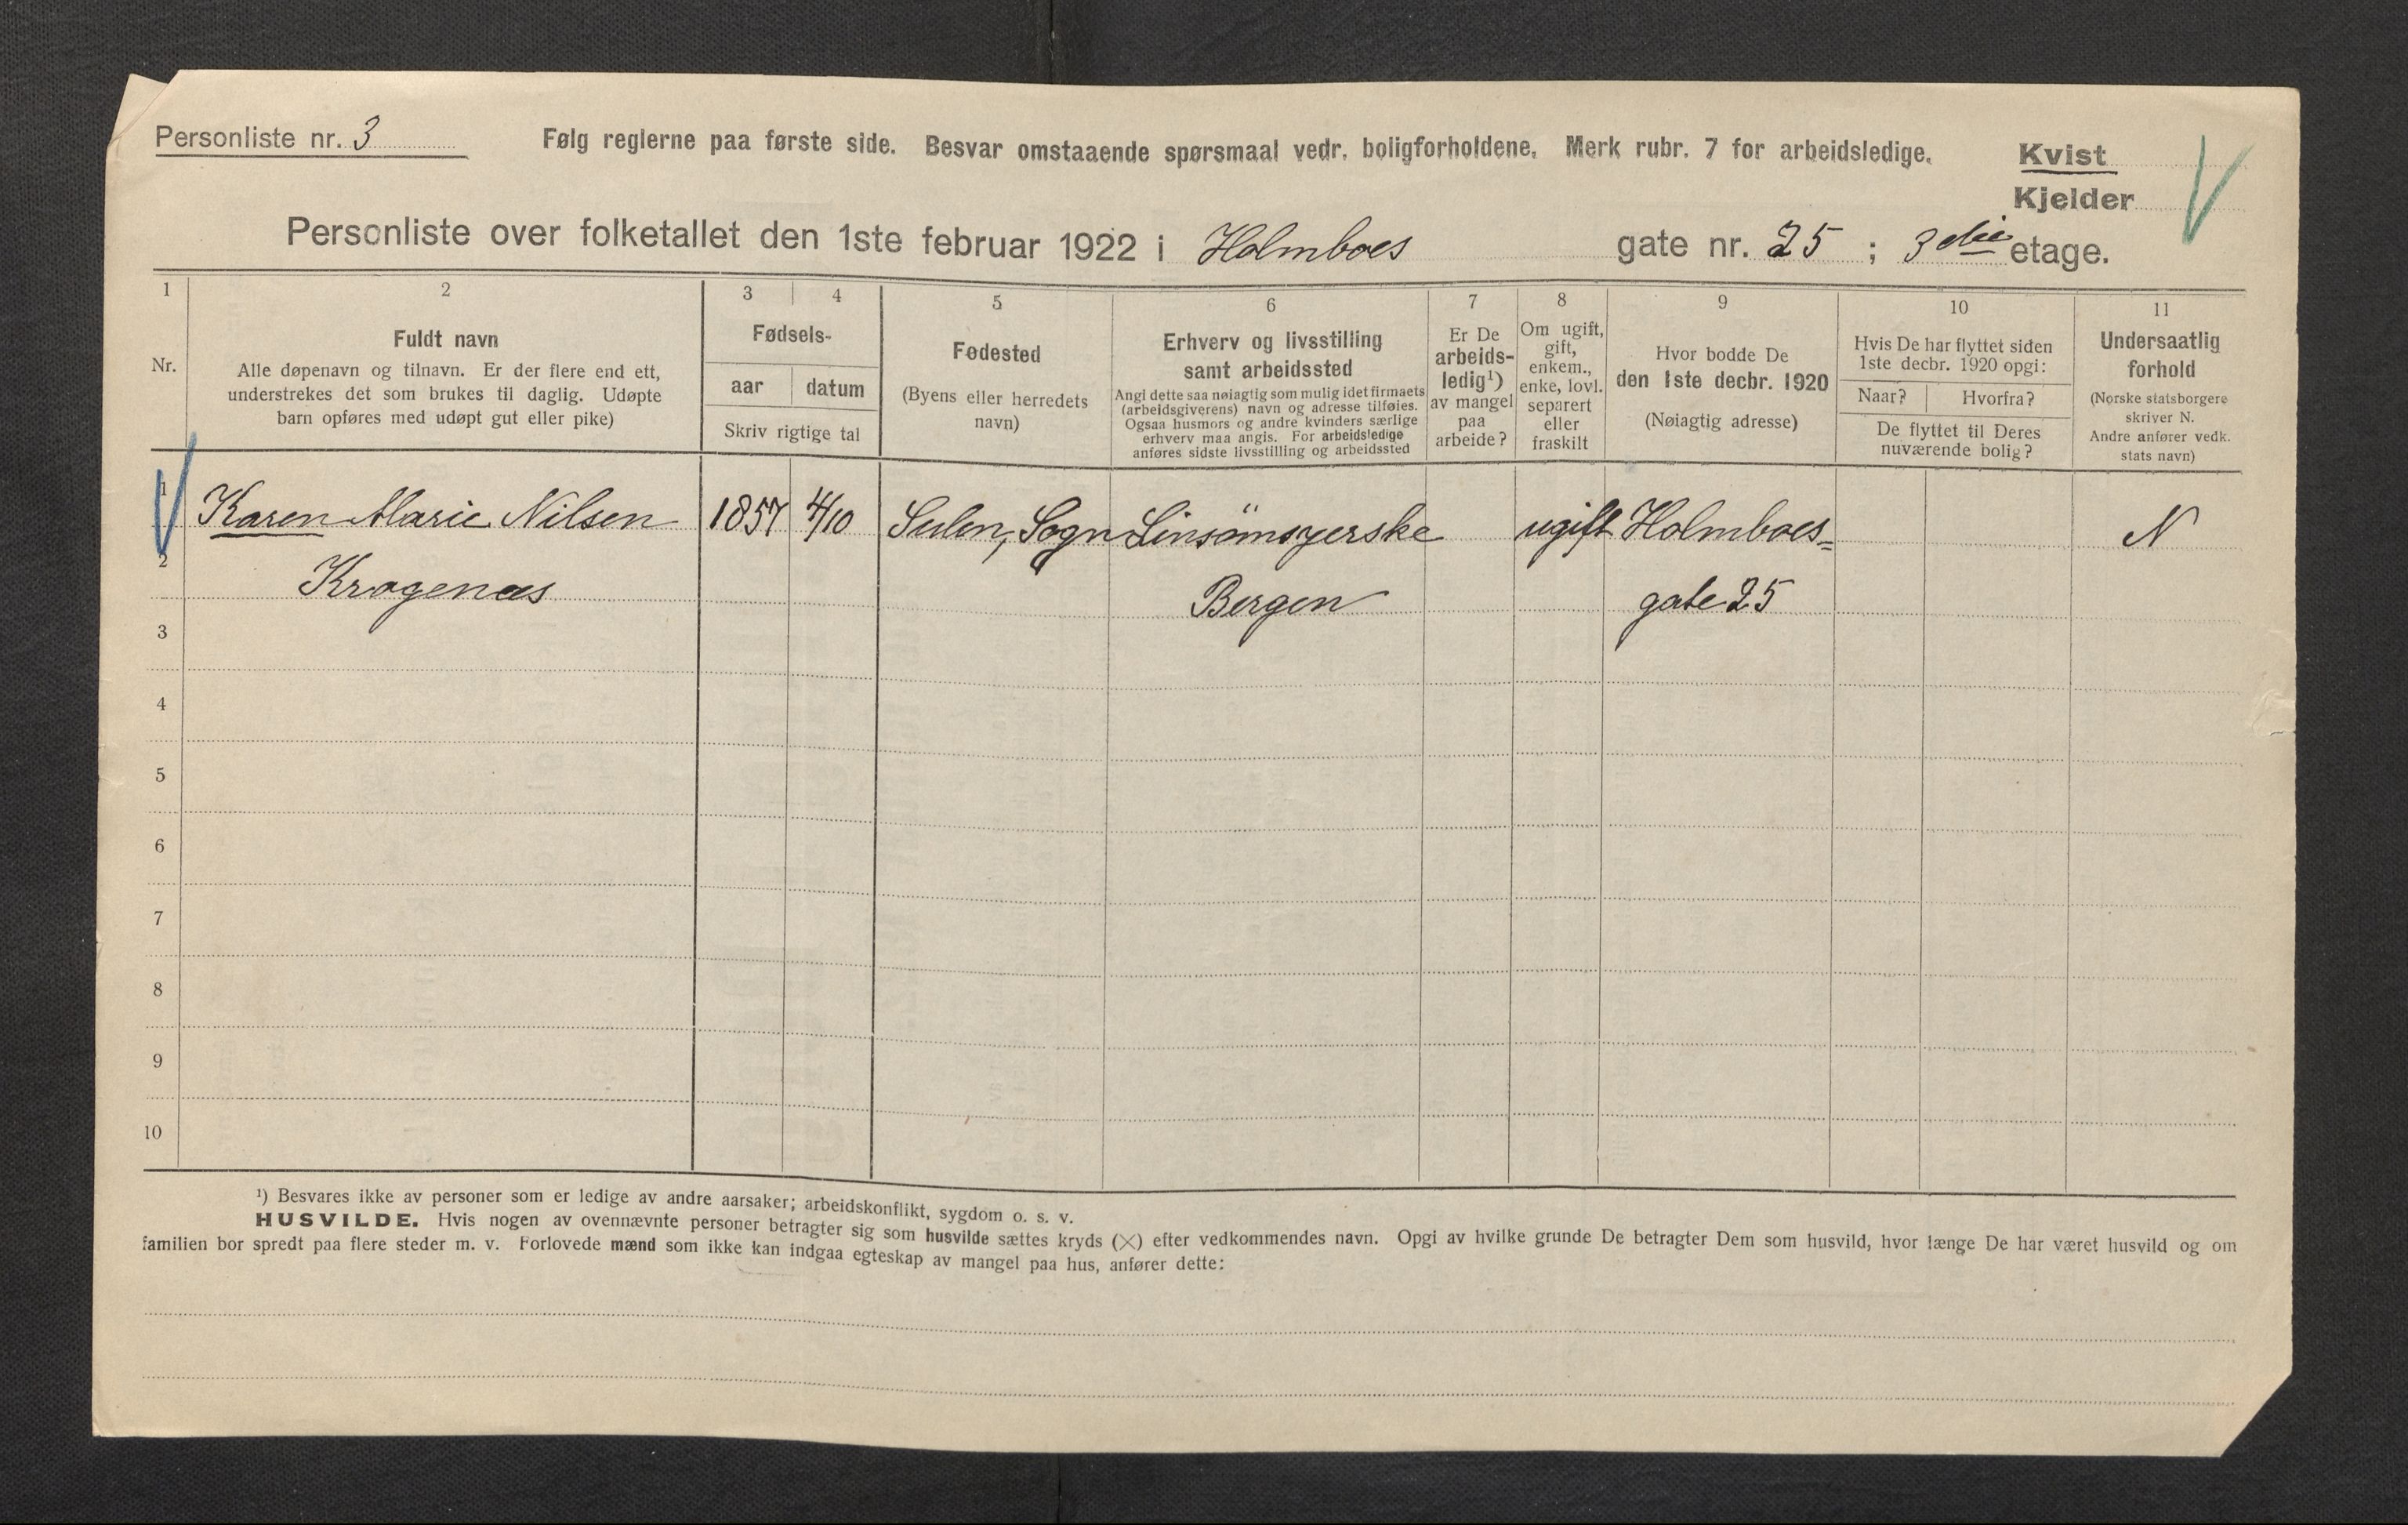 Personliste nr. 3
Følg reglerne paa første side. Besvar omstaaende spørsmaal vedr. boligforholdene. Merk rubr. 7 for arbeidsledige.
Kvist
Kjelder
Personliste over folketallet den 1ste februar 1922 i Holmboes gate nr. 25 ; 3die etage.
1 2 3 4 5 6 7 8 9 10 11
Nr.
Fuldt navn
Alle døpenavn og tilnavn. Er der flere end ett,
understrekes det som brukes til daglig. Udøpte
barn opføres med udøpt gut eller pike)
Fødsels-
aar datum
Skriv rigtige tal
Fødested
(Byens eller herredets
navn)
Erhverv og livsstilling
samt arbeidssted
Angi dette saa nøiagtig som mulig idet firmaets
(arbeidsgiverens) navn og adresse tilføies.
Ogsaa husmors og andre kvinders særlige
erhverv maa angis. For arbeidsledige
anføres sidste livsstilling og arbeidssted
Er De
arbeids-
ledig¹)
av mangel
paa
arbeide?
Om ugift,
gift,
enkem.,
enke, lovl.
separert
eller
fraskilt
Hvor bodde De
den 1ste decbr. 1920
(Nøiagtig adresse)
Hvis De har flyttet siden
1ste decbr. 1920 opgi:
Naar? Hvorfra?
De flyttet til Deres
nuværende bolig?
Undersaatlig
forhold
(Norske statsborgere
skriver N.
Andre anfører vedk.
stats navn)
1 Karen Marie Nilsen 1857 4/10 Sulen, Sogn Linsömsyerske ugift Holmboes= N
2 Krogenæs Bergen gate 25
3
4
5
6
7
8
9
10
¹) Besvares ikke av personer som er ledige av andre aarsaker; arbeidskonflikt, sygdom o. s. v.
HUSVILDE. Hvis nogen av ovennævnte personer betragter sig som husvilde sættes kryds (×) efter vedkommendes navn. Opgi av hvilke grunde De betragter Dem som husvild, hvor længe De har været husvild og om
familien bor spredt paa flere steder m. v. Forlovede mænd som ikke kan indgaa egteskap av mangel paa hus, anfører dette: